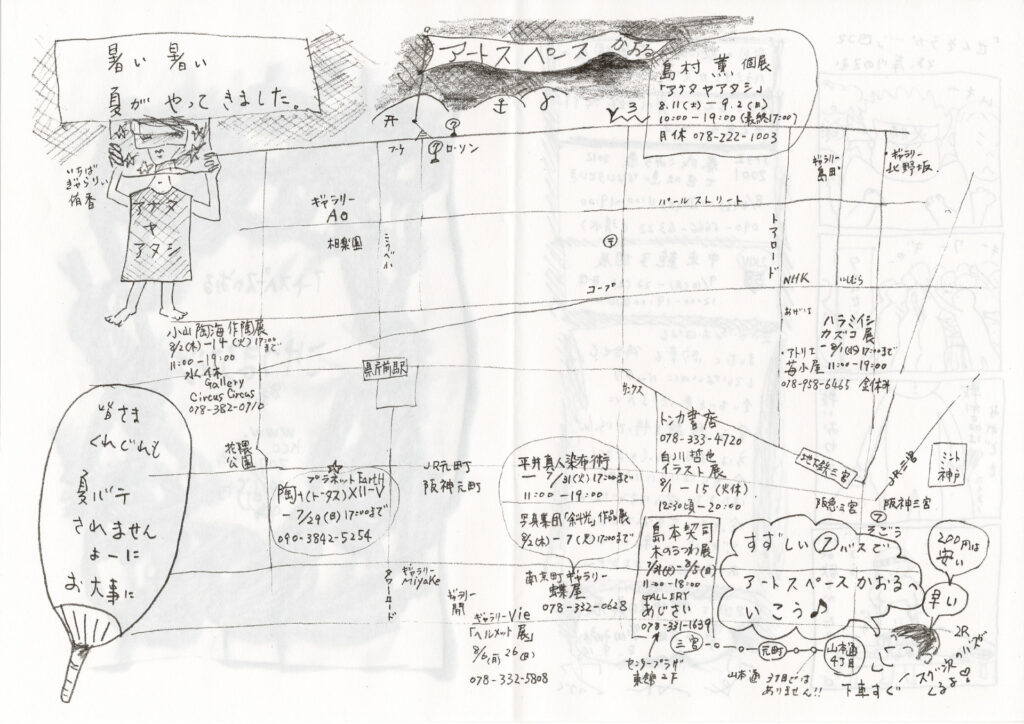 暑い 暑い
夏が やってきました。
アートスペース かおる
島村 薫 個展
「アナタヤアタシ」
8.11(土)-9.2(日)
10:00-19:00(最終17:00)
月休 078-222-1003
いちば
ぎゃらりぃ
侑香
アナタ
ヤ
アタシ
ローソン
ギャラリー
島田
ギャラリー
北野坂
ギャラリー
AO
相楽園
パールストリート
トアロード
コープ
NHK
小山陶海作陶展
8/2(木)-14(火)17:00まで
11:00-19:00
水休
Gallery
Circus Circus
078-382-0710
県庁前駅
ハラミイシ
カズコ展
アトリエ
苺小屋 11:00-19:00
078-958-6465
皆さま
くれぐれも
夏バテ
されません
よーに
お大事に
花隈
公園
プラネットEartH
陶ナ(トータス)XII-V
-7/29(日)17:00まで
090-3842-5254
JR元町
阪神元町
平井真人染布術
-7/31(火)17:00まで
11:00-19:00
写真集団「余光」作品展
8/2(木)-7(火)17:00まで
トンカ書店
078-333-4720
白川哲也
イラスト展
8/1-15(火休)
12:30頃-20:00
地下鉄三宮
JR三宮
ミント
神戸
阪急三宮
阪神三宮
そごう
ギャラリー
Miyake
タワーロード
ギャラリー
開
ギャラリーVie
「ヘルメット展」
8/6(月) 26(日)
078-332-5808
南京町ギャラリー
蝶屋
078-332-0628
島本契司
木のうつわ展
11:00-18:00
GALLERY
あじさい
078-331-1639
センタープラザ
東館2F
すずしい⑦バスで
アートスペースかおるへ
いこう♪
200円は
安い
早い
三宮
元町
山本通
4丁目
山本通 3丁目では
ありません!!
下車すぐ
スグ次のバスが
くるよ♡